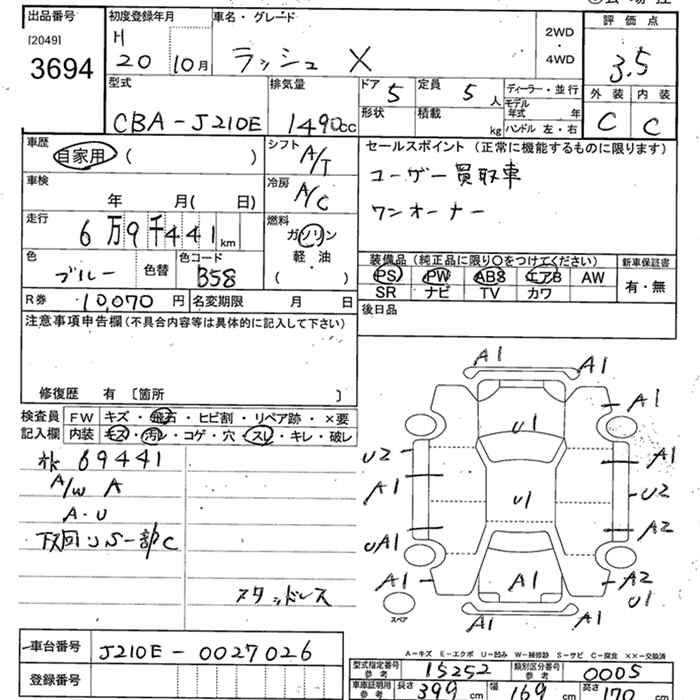 出品番号
[2049]
3694
初度登録年月
H
20 10月
車名・グレード
ラッシュ X
2WD
・
4WD
評価点
3.5
外装 内装
C C
型式
CBA-J210E
排気量
1490cc
ドア 5
形状
定員 5 人
積載 kg
ディーラー・並行
モデル年式 年
ハンドル 左・右
車歴
自家用 ( )
車検
年 月( 日)
走行
6万9千441km
色
ブルー
色替
色コード
B58
シフト
A/T
冷房
A/C
燃料
ガソリン
軽・油
( ・ )
R券 10,070円
名変期限 月 日
セールスポイント (正常に機能するものに限ります)
ユーザー買取車
ワンオーナー
装備品 (純正品に限り○をつけてください)
PS PW ABS エアB AW
SR ナビ TV カワ
新車保証書
有・無
後日品
注意事項申告欄 (不具合内容等は具体的に記入して下さい)
修復歴 有 〔箇所 〕
検査員
記入欄
FW キズ・飛石・ヒビ割・リペア跡・×要
内装 キズ・汚レ・コゲ・穴・スレ・キレ・破レ
69441
A/W A
A・U
下回りS一部C
スタッドレス
A1
A1
A1
U1
U2
A1
A1
U1
U2
A2
UA1
A1
A1
A2
U1
A1
A1
スペア
A-キズ E-エクボ U-凹み W-補修跡 S-サビ C-腐食 ××-交換済
車台番号 J210E-0027026
登録番号
型式指定番号 参考 15252
類別区分番号 参考 0005
車庫証明用 参考
長さ 399 cm
幅 169 cm
高さ 170 cm